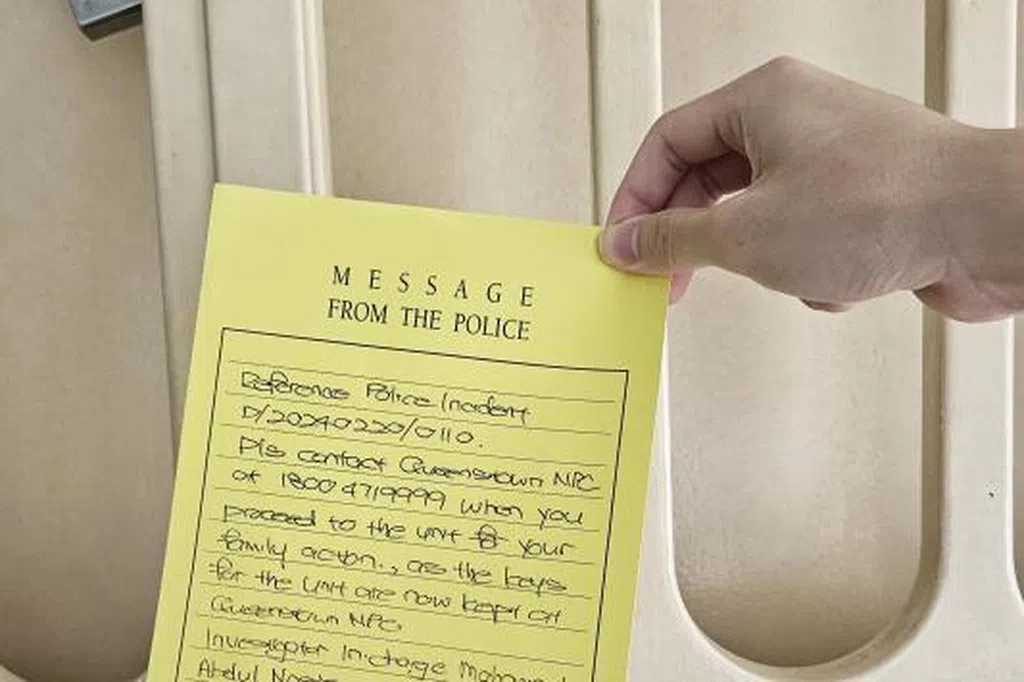 MESSAGE
FROM THE POLICE
Reference Police Incident
D/20240220/0110.
Pls contact Queenstown NPC
at 1800 4719999 when you
proceed to the unit for your
family action., as the keys
for the unit are now kept at
Queenstown NPC
Investigator In-charge
Abdul